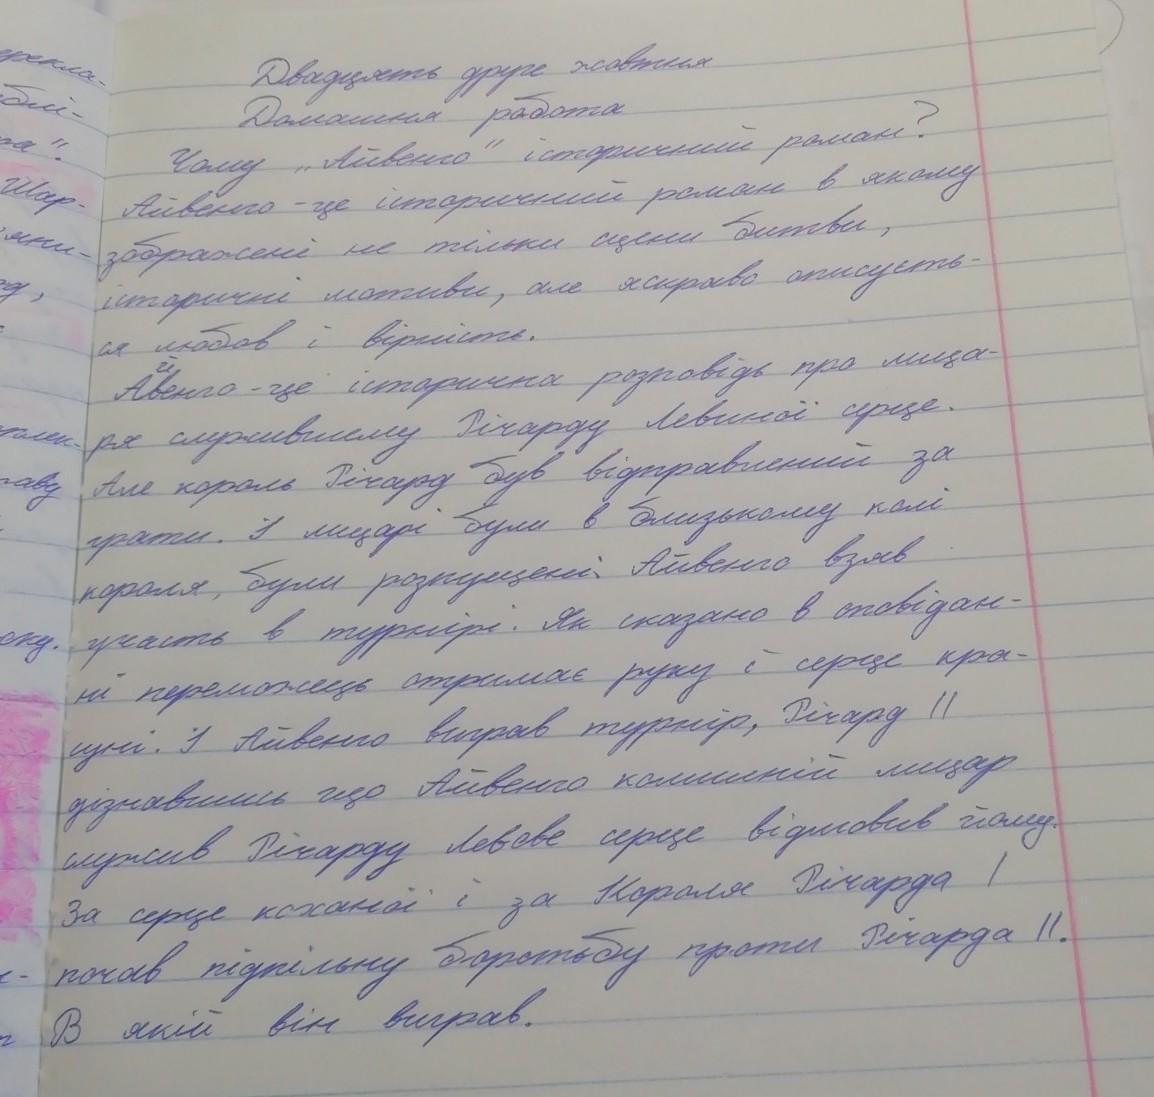 Двадцять друге жовтня
Домашня робота
Чому „Айвенго" історичний роман?
Айвенго - це історичний роман в якому
зображені не тільки сцени битви,
історичні мотиви, але яскраво описуєть-
ся любов і вірність.
Айвенго - це історична розповідь про лица-
ря служившему Річарду Левиної серце.
Але король Річард був відправлений за
грати. І лицарі були в близькому колі
короля, були розпущені. Айвенго взяв
участь в турнірі. Як сказано в оповідан-
ні переможець отримає руку і серце кра-
цні. І Айвенго виграв турнір, Річард II
дізнавшись що Айвенго колишній лицар
служив Річарду Левове серце відмовив йому.
За серце коханої і за Короля Річарда I
почав підпільну боротьбу проти Річарда II.
В якій він виграв.
ерекла-
ра".
Шар-
яни-
полек-
раву
оку.